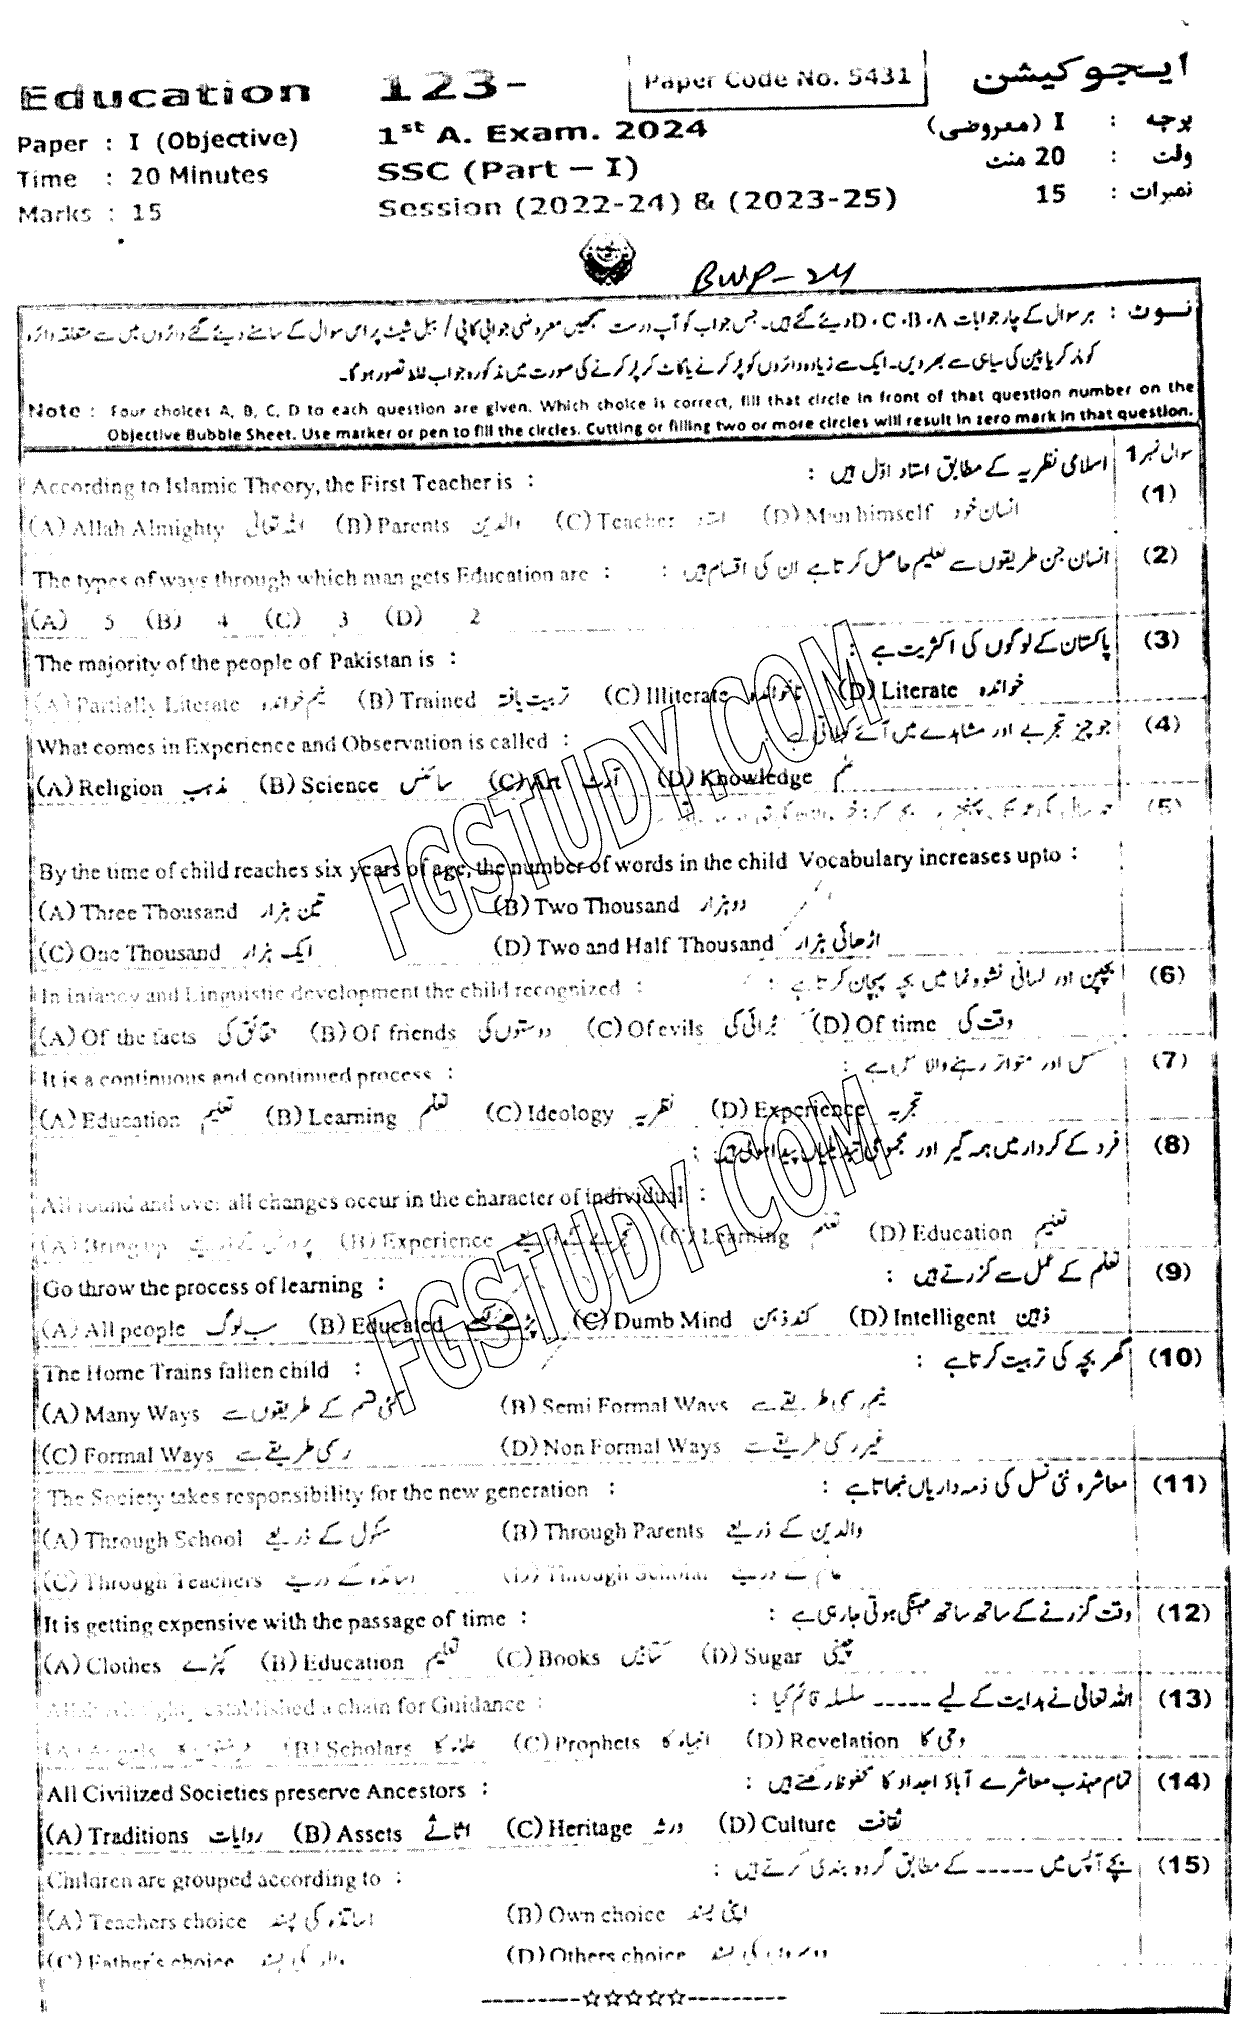 Education 123- Paper Code No. 5431 ایجوکیشن
Paper : I (Objective) 1st A. Exam. 2024 پرچہ : I (معروضی)
Time : 20 Minutes SSC (Part – I) وقت : 20 منٹ
Marks : 15 Session (2022-24) & (2023-25) نمبرات : 15
BWP-24
نوٹ : ہر سوال کے چار جوابات D،C،B،A دیئے گئے ہیں۔ جس جواب کو آپ درست سمجھیں معروضی جوابی کاپی / ببل شیٹ پر اس سوال کے سامنے دیئے گئے دائروں میں سے متعلقہ دائرہ
کو مارکر یا پین کی سیاہی سے بھر دیں۔ ایک سے زیادہ دائروں کو پُر کرنے یا کاٹ کر پُر کرنے کی صورت میں مذکورہ جواب غلط تصور ہو گا۔
Note : Four choices A, B, C, D to each question are given. Which choice is correct, fill that circle in front of that question number on the
Objective Bubble Sheet. Use marker or pen to fill the circles. Cutting or filling two or more circles will result in zero mark in that question.
سوال نمبر 1 اسلامی نظریہ کے مطابق استاد اوّل ہیں :
According to Islamic Theory, the First Teacher is : (1)
(A) Allah Almighty اللہ تعالیٰ (B) Parents والدین (C) Teacher استاد (D) Man himself انسان خود
(2) انسان جن طریقوں سے تعلیم حاصل کرتا ہے ان کی اقسام ہیں :
The types of ways through which man gets Education are :
(A) 5 (B) 4 (C) 3 (D) 2
(3) پاکستان کے لوگوں کی اکثریت ہے :
The majority of the people of Pakistan is :
(A) Partially Literate نیم خواندہ (B) Trained تربیت یافتہ (C) Illiterate ناخواندہ (D) Literate خواندہ
(4) جو چیز تجربے اور مشاہدے میں آئے کہلاتی ہے
What comes in Experience and Observation is called :
(A) Religion مذہب (B) Science سائنس (C) Art آرٹ (D) Knowledge علم
(5)
By the time of child reaches six years of age, the number of words in the child Vocabulary increases upto :
(A) Three Thousand تین ہزار (B) Two Thousand دو ہزار
(C) One Thousand ایک ہزار (D) Two and Half Thousand اڑھائی ہزار
(6) بچپن اور لسانی نشوونما میں بچہ پہچان کرتا ہے :
In infancy and Linguistic development the child recognized :
(A) Of the facts حقائق کی (B) Of friends دوستوں کی (C) Of evils بُرائی کی (D) Of time وقت کی
(7) مسلسل اور متواتر رہنے والا عمل ہے :
It is a continuous and continued process :
(A) Education تعلیم (B) Learning تعلم (C) Ideology نظریہ (D) Experience تجربہ
(8) فرد کے کردار میں ہمہ گیر اور مجموعی تبدیلیاں پیدا ہوتی ہیں :
All round and over all changes occur in the character of individual :
(A) Bring up (B) Experience تجربے کے ذریعے (C) Learning تعلم (D) Education تعلیم
(9) تعلم کے عمل سے گزرتے ہیں :
Go throw the process of learning :
(A) All people سب لوگ (B) Educated پڑھے لکھے (C) Dumb Mind کند ذہن (D) Intelligent ذہین
(10) گھر بچہ کی تربیت کرتا ہے :
The Home Trains fallen child :
(A) Many Ways کئی قسم کے طریقوں سے (B) Semi Formal Ways نیم رسمی طریقے سے
(C) Formal Ways رسمی طریقے سے (D) Non Formal Ways غیر رسمی طریقے سے
(11) معاشرہ نئی نسل کی ذمہ داریاں نبھاتا ہے :
The Society takes responsibility for the new generation :
(A) Through School سکول کے ذریعے (B) Through Parents والدین کے ذریعے
(C) Through Teachers اساتذہ کے ذریعے (D) Through Scholar عالم کے ذریعے
(12) وقت گزرنے کے ساتھ ساتھ مہنگی ہوتی جا رہی ہے :
It is getting expensive with the passage of time :
(A) Clothes کپڑے (B) Education تعلیم (C) Books کتابیں (D) Sugar چینی
(13) اللہ تعالیٰ نے ہدایت کے لیے ----- سلسلہ قائم کیا :
Allah Almighty established a chain for Guidance :
(A) Angels فرشتوں کا (B) Scholars علماء کا (C) Prophets انبیاء کا (D) Revelation وحی کا
(14) تمام مہذب معاشرے آباؤ اجداد کا محفوظ رکھتے ہیں :
All Civilized Societies preserve Ancestors :
(A) Traditions روایات (B) Assets اثاثے (C) Heritage ورثہ (D) Culture ثقافت
(15) بچے آپس میں ----- کے مطابق گروہ بندی کرتے ہیں :
Children are grouped according to :
(A) Teachers choice اساتذہ کی پسند (B) Own choice اپنی پسند
(C) Father's choice والد کی پسند (D) Others choice دوسروں کی پسند
---------☆☆☆☆☆---------
FGSTUDY.COM
FGSTUDY.COM